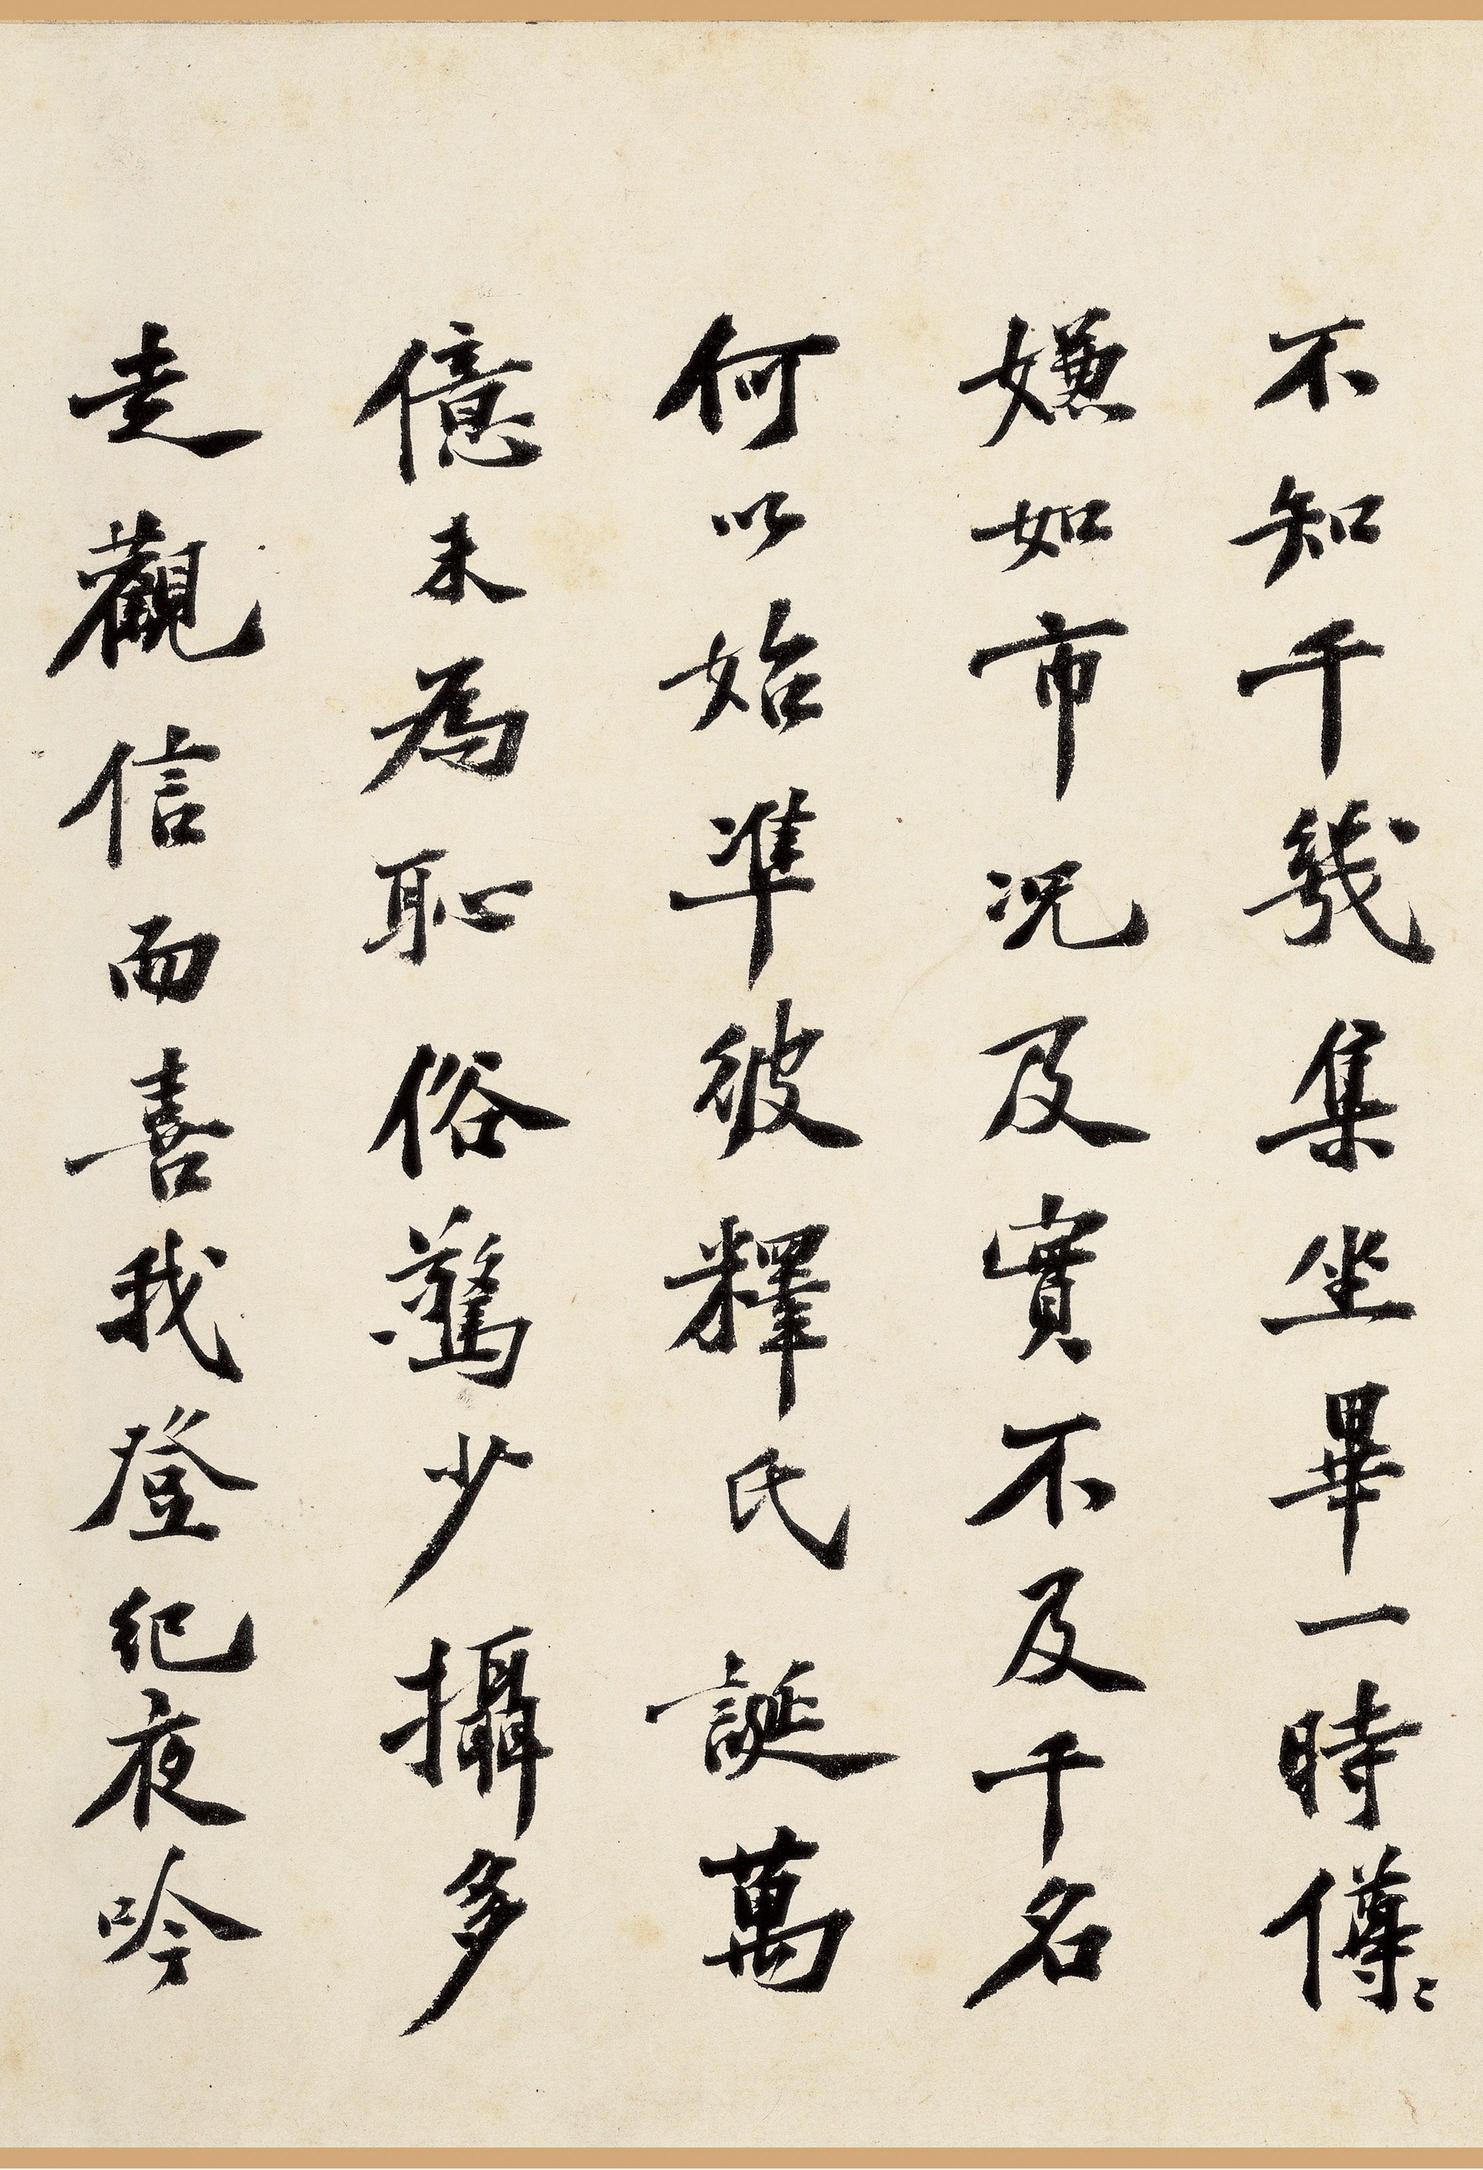 不知千幾集坐畢一時僔〻
嫌如市况及實不及千名
何以始準彼釋氏誕萬
億未為恥俗驚少攝多
走觀信而喜我登紀夜吟